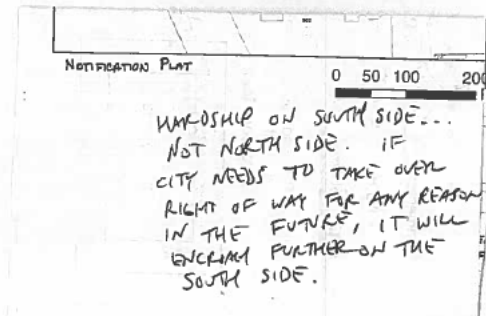 NOTIFICATION PLAT
0 50 100 200
HARDSHIP ON SOUTH SIDE...
NOT NORTH SIDE. IF
CITY NEEDS TO TAKE OVER
RIGHT OF WAY FOR ANY REASON
IN THE FUTURE, IT WILL
ENCROACH FURTHER ON THE
SOUTH SIDE.